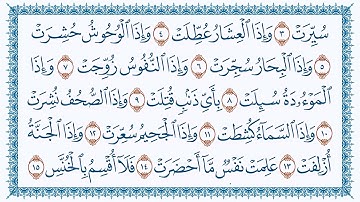 سُيِّرَتْ ٣ وَإِذَا ٱلْعِشَارُ عُطِّلَتْ ٤ وَإِذَا ٱلْوُحُوشُ حُشِرَتْ
٥ وَإِذَا ٱلْبِحَارُ سُجِّرَتْ ٦ وَإِذَا ٱلنُّفُوسُ زُوِّجَتْ ٧ وَإِذَا
ٱلْمَوْءُۥدَةُ سُئِلَتْ ٨ بِأَيِّ ذَنۢبٍ قُتِلَتْ ٩ وَإِذَا ٱلصُّحُفُ نُشِرَتْ
١٠ وَإِذَا ٱلسَّمَآءُ كُشِطَتْ ١١ وَإِذَا ٱلْجَحِيمُ سُعِّرَتْ ١٢ وَإِذَا ٱلْجَنَّةُ
أُزْلِفَتْ ١٣ عَلِمَتْ نَفْسٌ مَّآ أَحْضَرَتْ ١٤ فَلَآ أُقْسِمُ بِٱلْخُنَّسِ ١٥